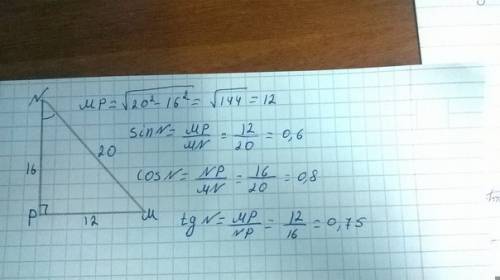 N
MP = √20² - 16² = √144 = 12
sin N = MP/MN = 12/20 = 0,6
20
16
cos N = NP/MN = 16/20 = 0,8
P
12
M
tg N = MP/NP = 12/16 = 0,75